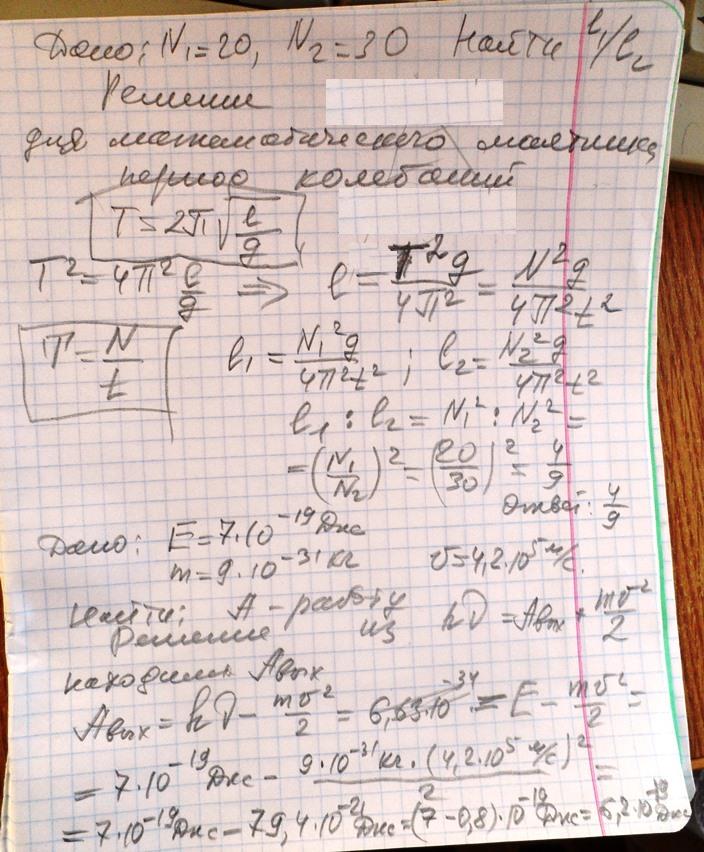 Дано: N₁=20, N₂=30 Найти l₁/l₂
Решени
для математического маятника
период колебаний
T=2π√(l/g)
T²=4π² l/g ⇒ l = T²g/4π² = N²g/4π²t²
T = N/t l₁ = N₁²g/4π²t² ; l₂ = N₂²g/4π²t²
l₁ : l₂ = N₁² : N₂² =
= (N₁/N₂)² = (20/30)² = 4/9
Ответ: 4/9
Дано: E=7·10⁻¹⁹ Дж
m=9·10⁻³¹ кг v=4,2·10⁵ м/с.
Найти: A - работу
Решение из hν = Aвых + mv²/2
находим Aвых
Aвых = hν − mv²/2 = 6,63·10⁻³⁴ = E − mv²/2 =
= 7·10⁻¹⁹ Дж − 9·10⁻³¹ кг·(4,2·10⁵ м/с)²/2 =
= 7·10⁻¹⁹ Дж − 79,4·10⁻²¹ Дж = (7−0,8)·10⁻¹⁹ Дж = 6,2·10⁻¹⁹ Дж